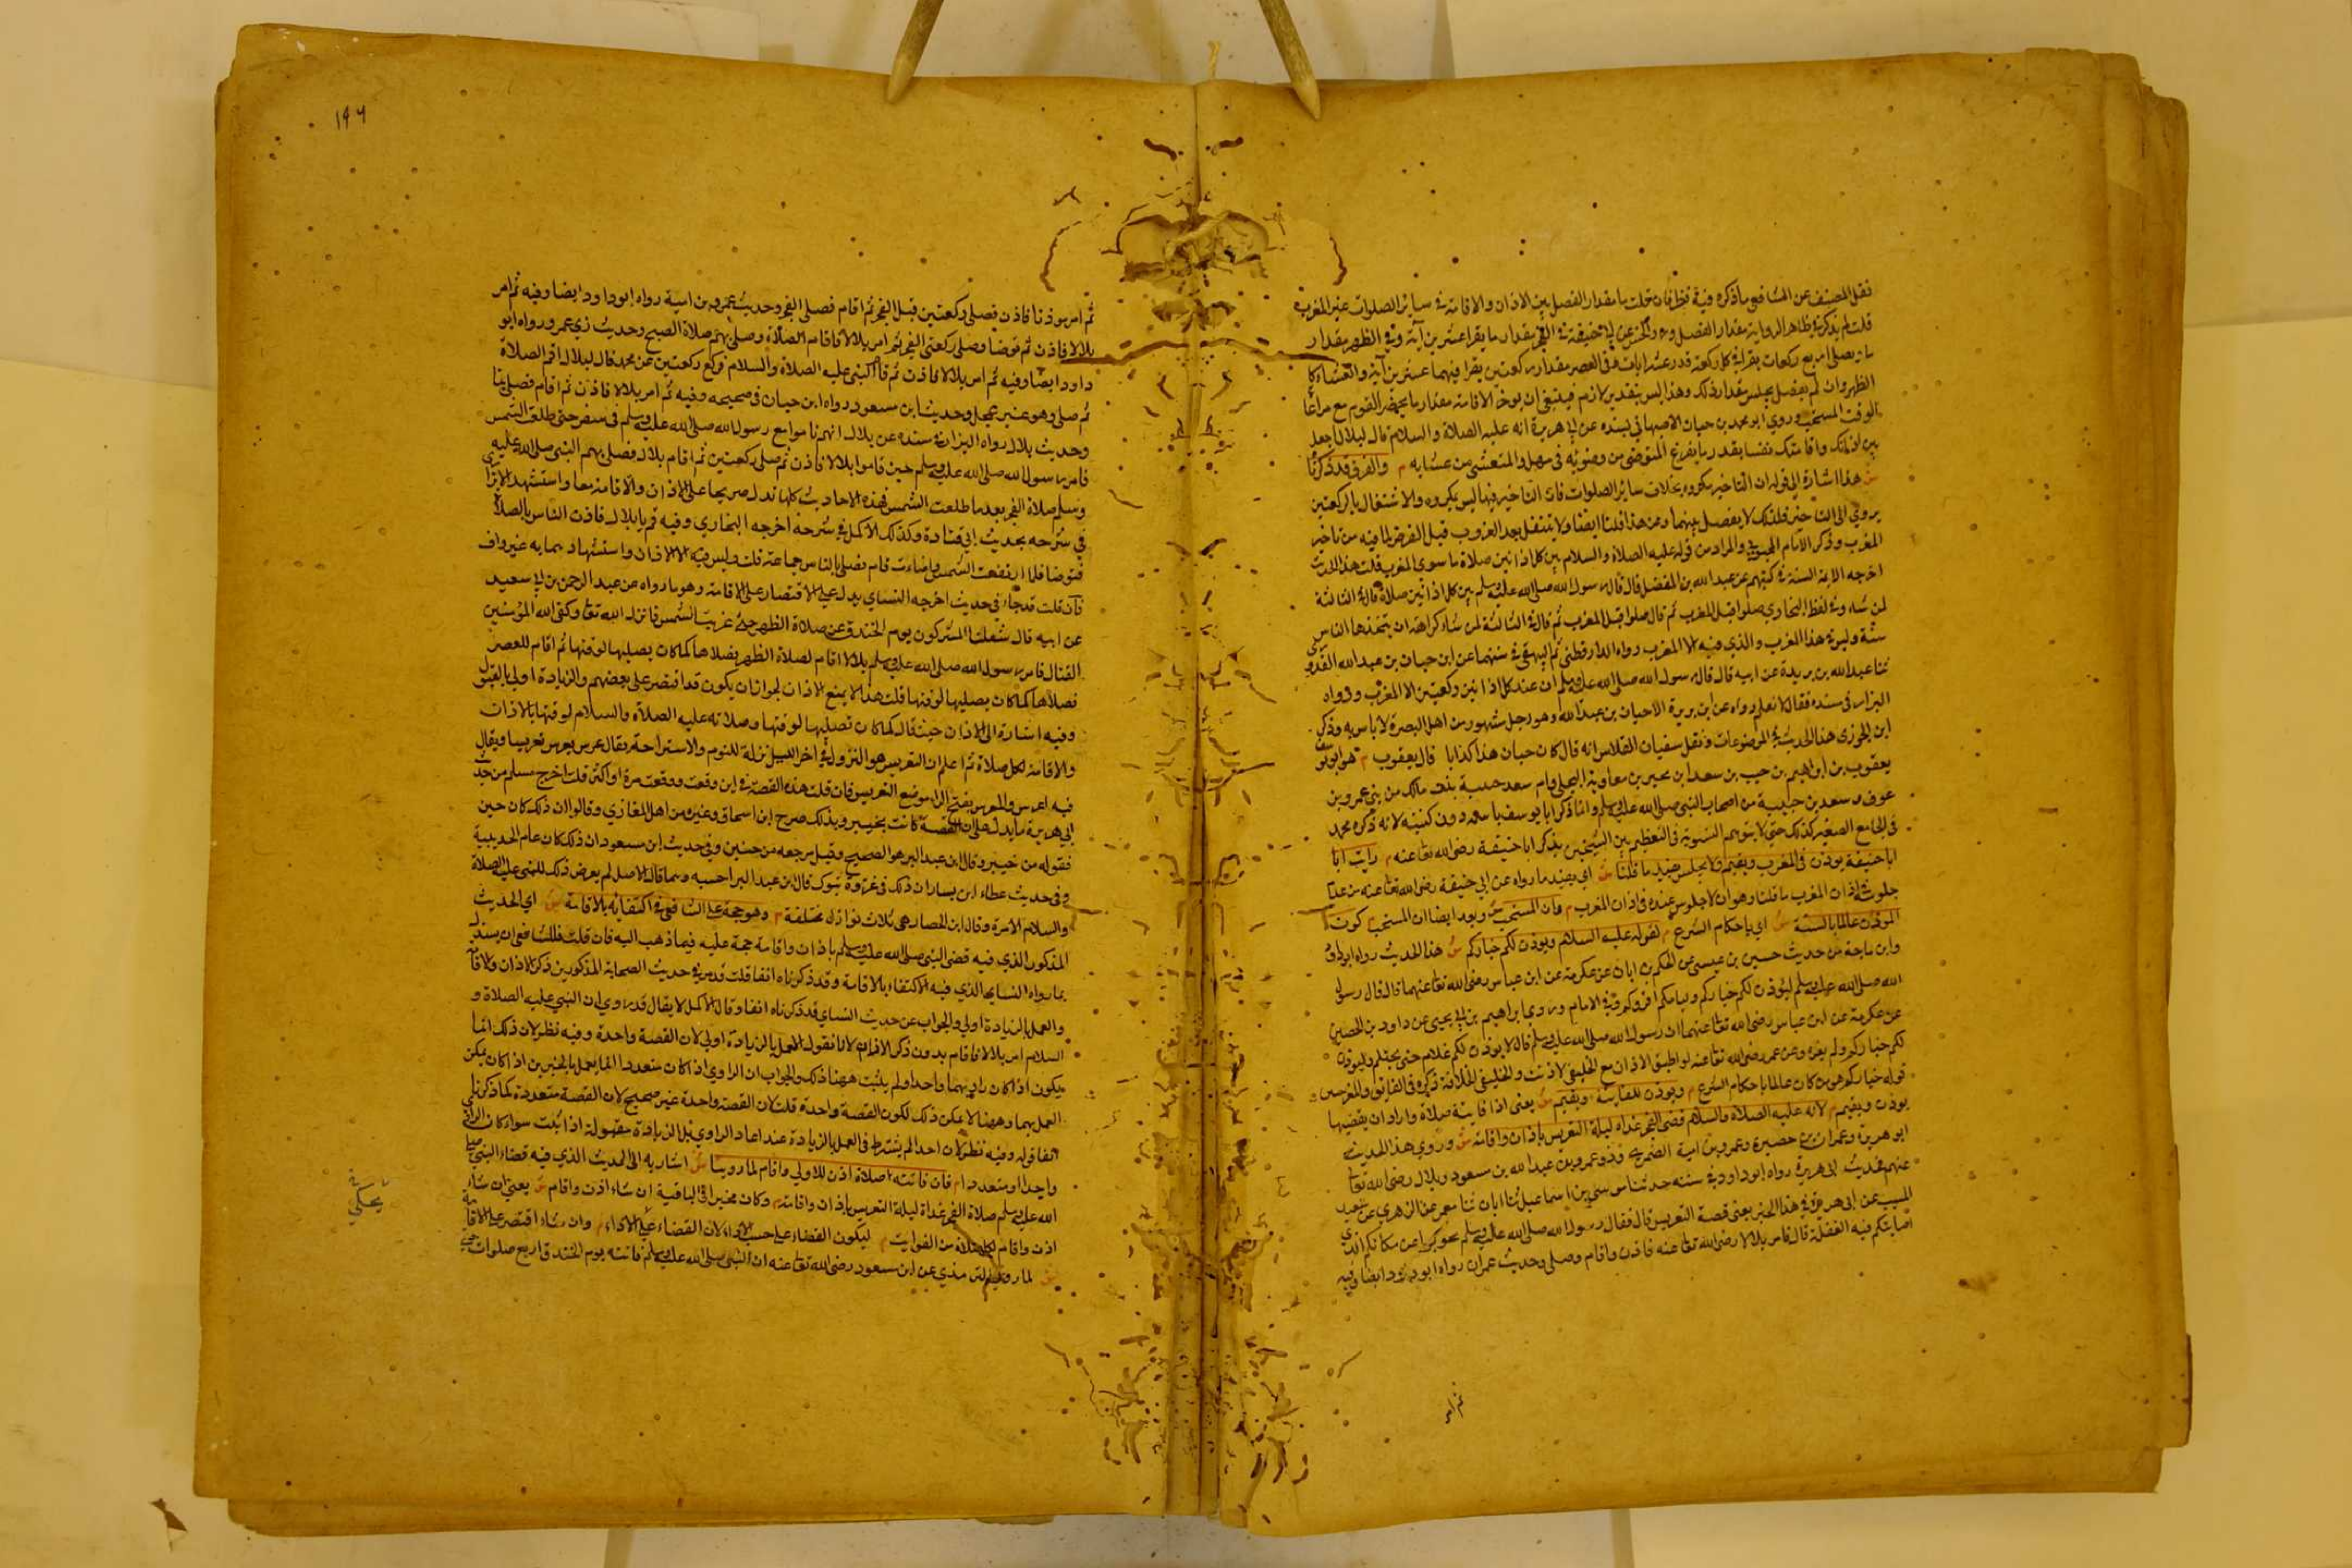 نقل المصنف عن الشافعي ما ذكره فيه نظر فان قلت ما مقدار الفصل بين الاذان والاقامة في سائر الصلوات غير المغرب
قلت لم يذكر في ظاهر الرواية مقدار الفصل وروى الحسن عن ابي حنيفة في الفجر مقدار ما يقرا عشرين آية وفي الظهر مقدار
ما يصلي اربع ركعات يقرا في كل ركعة قدر عشر ايات وفي العصر مقدار ركعتين يقرا فيهما عشرين آية والعشاء كا
الظهر وان لم يصل يجلس مقدار ذلك وهذا ليس بتقدير لازم فينبغي ان يوخر الاقامة مقدار ما يحضر القوم مع مراعاة
الوقت المستحب وروي ابو محمد بن حيان الاصبهاني بسنده عن ابي هريرة انه عليه الصلاة والسلام قال لبلال اجعل
بين اذانك واقامتك نفسا بقدر ما يفرغ المتوضئ من وضوئه في مهل والمتعشى من عشايه م والفرق قد ذكرنا
ش هذا اشارة الى قوله ان التاخير مكروه بخلاف سائر الصلوات فان التاخير فيها ليس بمكروه والاشتغال بالركعتين
يودي الى التاخير فلذلك لا يفصل بينهما وعن هذا قلنا ايضا ولا يتنفل بعد الغروب قبل الفرض لما فيه من تاخير
المغرب وذكر الامام المحبوبي والمراد من قوله عليه الصلاة والسلام بين كل اذانين صلاة ما سوى المغرب قلت هذا الحديث
اخرجه الايمة الستة في كتبهم عن عبد الله بن المغفل قال قال رسول الله صلى الله عليه وسلم بين كل اذانين صلاة قال في الثالثة
لمن شاء وفي لفظ البخاري صلوا قبل المغرب ثم قال صلوا قبل المغرب ثم قال في الثالثة لمن شاء كراهة ان يتخذها الناس
سنة وليس في هذا المغرب والذي فيه الا المغرب رواه الدارقطني ثم البيهقي في سننهما عن ابن حيان بن عبد الله العدوي
ثنا عبد الله بن بريدة عن ابيه قال قال رسول الله صلى الله عليه وسلم ان عند كل اذانين ركعتين الا المغرب ورواه
البزار في مسنده فقال لا نعلم رواه عن ابن بريدة الا حيان بن عبد الله وهو رجل مشهور من اهل البصرة لا باس به وذكر
ابن الجوزي هذا الحديث في الموضوعات ونقل سفيان الفلاس انه قال كان حيان هذا كذابا قال يعقوب م هو ابو يوسف
يعقوب بن ابراهيم بن حبيب بن سعد ابن بحير بن معاوية البجلي وام سعد حبتة بنت مالك من بني عمرو بن
عوف وسعد بن حبتة من اصحاب النبي صلى الله عليه وسلم وانما ذكر ابا يوسف باسمه دون كنيته لانه ذكره محمد
في الجامع الصغير كذلك حتى لا يتوهم التسوية في التعظيم بين الشيخين بذكر ابا حنيفة رضي الله تعا عنه م رايت ابا
ابا حنيفة يوذن في المغرب ويقيم ولا يجلس يفيد ما قلنا ش اي يفيد ما رواه عن ابي حنيفة رضي الله تعا عنه من عدم
جلوسه في اذان المغرب ما قلنا وهو ان لا جلوس عنده في اذان المغرب م وان المستحب ش ويفيد ايضا ان المستحب م كون
الموذن عالما بالسنة ش اي باحكام الشرع م لقوله عليه السلام ويوذن لكم خياركم ش هذا الحديث رواه ابو داود
وابن ماجة من حديث حسين بن عيسى عن الحكم بن ابان عن عكرمة عن ابن عباس رضي الله تعا عنهما قال قال رسول
الله صلى الله عليه وسلم ليوذن لكم خياركم وليامكم اقروكم وفي الامام وروى ابراهيم بن ابي يحيى عن داود بن الحصين
عن عكرمة عن ابن عباس رضي الله تعا عنهما ان رسول الله صلى الله عليه وسلم قال لا يوذن لكم غلام حتى يحتلم وليوذن
لكم خياركم ولم يعزه وعن عمر رضي الله تعا عنه لو اطيق الاذان مع الخليفى لاذنت والخليفى الخلافة ذكره في الفائق والمؤدبين
قوله خياركم هو من كان عالما باحكام الشرع م ويوذن للفائتة ويقيم ش يعني اذا فائتة صلاة واراد ان يقضيها
يوذن ويقيم م لانه عليه الصلاة والسلام قضى الفجر غداة ليلة التعريس باذان واقامة ش وروي هذا الحديث
ابو هريرة وعمران بن حصين وعمرو بن امية الضمري وذو عمرو بن عبد الله بن مسعود وبلال رضي الله تعا
عنهم فحديث ابي هريرة رواه ابو داود في سننه حدثنا موسى بن اسماعيل ثنا ابان ثنا معمر عن الزهري عن سعيد
المسيب عن ابي هريرة في هذا الخبر يعني قصة التعريس قال فقال رسول الله صلى الله عليه وسلم تحولوا عن مكانكم الذي
اصابتكم فيه الغفلة قال فامر بلالا رضي الله تعا عنه فاذن واقام وصلى وحديث عمران رواه ابو داود ايضا وفيه
ثم امر
١٩٦
ثم امر موذنا فاذن فصلى ركعتين قبل الفجر ثم اقام فصلى الفجر وحديث عمرو بن امية رواه ابو داود ايضا وفيه ثم امر
بلالا فاذن ثم توضا وصلى ركعتي الفجر ثم امر بلالا فاقام الصلاة وصلى بهم صلاة الصبح وحديث ذي عمرو رواه ابو
داود ايضا وفيه ثم امر بلالا فاذن ثم قام النبي عليه الصلاة والسلام فركع ركعتين عن محمد قال لبلال اقم الصلاة
ثم صلى وهو غير عجل وحديث ابن مسعود رواه ابن حبان في صحيحه وفيه ثم امر بلالا فاذن ثم اقام فصلى بنا
وحديث بلال رواه البزار في سنده عن بلال انهم ناموا مع رسول الله صلى الله عليه وسلم في سفر حتى طلعت الشمس
فامر رسول الله صلى الله عليه وسلم حين قاموا بلالا فاذن ثم صلى ركعتين ثم اقام بلال فصلى بهم النبي صلى الله عليه
وسلم صلاة الفجر بعد ما طلعت الشمس فهذه الاحاديث كلها تدل صريحا على الاذان والاقامة معا واستشهد الاترازي
في شرحه بحديث ابي قتادة وكذلك الاكمل في شرحه اخرجه البخاري وفيه قم يا بلال فاذن الناس بالصلاة
فتوضا فلما ارتفعت الشمس وابياضت قام فصلى بالناس جماعة قلت وليس فيه الا الاذان واستشهاد بما به غير واف
فان قلت قد جاء في حديث اخرجه النساي يدل على الاقتصار على الاقامة وهو ما رواه عن عبد الرحمن بن ابي سعيد
عن ابيه قال شغلنا المشركون يوم الخندق عن صلاة الظهر حتى غربت الشمس فانزل الله تعا وكفى الله المؤمنين
القتال فامر رسول الله صلى الله عليه وسلم بلالا اقام لصلاة الظهر فصلاها كما كان يصليها لوقتها ثم اقام للعصر
فصلاها كما كان يصليها لوقتها قلت هذا لا يمنع الاذان لجواز ان يكون قد اقتصر على بعضهم والزيادة اولى بالقبول
وفيه اشارة الى الاذان حيث قال كما كان يصليها لوقتها وصلاته عليه الصلاة والسلام لوقتها بالاذان
والاقامة لكل صلاة ثم اعلم ان التعريس هو النزول في اخر الليل نزلة للنوم والاستراحة يقال عرس يعرس تعريسا ويقال
فيه اعرس والمعرس بفتح الراء موضع التعريس فان قلت هذه القصة في اين وقعت ووقعت مرة او اكثر قلت اخرج مسلم من حديث
ابي هريرة ما يدل على ان القصة كانت بخيبر وبذلك صرح ابن اسحاق وغيره من اهل المغازي وقالوا ان ذلك كان حين
قفوله من خيبر وقال ابن عبد البر هو الصحيح وقيل مرجعه من حنين وفي حديث ابن مسعود ان ذلك كان عام الحديبية
وفي حديث عطاء ابن يسار ان ذلك في غزوة تبوك قال ابن عبد البر احسبه وهما قال الاصل لم يعرض ذلك للنبي عليه الصلاة
والسلام الا مرة وقال ابن الحصار هي ثلاث نوازل مختلفة م وهو حجة على الشافعي في اكتفائه بالاقامة ش اي الحديث
المذكور الذي فيه قضى النبي صلى الله عليه وسلم باذان واقامة حجة عليه فيما ذهب اليه فان قلت فللشافعي ان يستدل
بما رواه النساي الذي فيه الاكتفاء بالاقامة وقد ذكرناه انفا قلت قد مر في حديث الصحابة المذكورين ذكر الاذان والاقامة
والعمل بالزيادة اولى والجواب عن حديث النساي قد ذكرناه انفا وقال الاكمل لا يقال قد روي ان النبي عليه الصلاة و
السلام امر بلالا فاقام بدون ذكر الاذان لانا نقول العمل بالزيادة اولى لان القصة واحدة وفيه نظر لان ذلك انما
يكون اذا كان راويهما واحدا ولم يثبت ههنا ذلك والجواب ان الراوي اذا كان متعددا انما يعمل بالخبرين اذا كان يمكن
العمل بهما وههنا لا يمكن ذلك لكون القصة واحدة قلت لان القصة واحدة غير صحيح لان القصة متعددة كما ذكرنا في
انفا قوله وفيه نظر كان احدا لم يشترط في العمل بالزيادة عند اعاد الراوي بل الزيادة مقبولة اذا ثبتت سواء كان الراوي
واحدا او متعددا م فان فاتته صلاة اذن للاولى واقام لما روينا ش اشار به الى الحديث الذي فيه قضاء النبي صلى
الله عليه وسلم صلاة الفجر غداة ليلة التعريس باذان واقامة م وكان مخيرا في الباقية ان شاء اذن واقام ش يعني ان شاء
اذن واقام لكل صلاة من الفوايت م ليكون القضاء على حسب الاداء لان القضاء على الاداء م وان شاء اقتصر على الاقامة
ش لما روى الترمذي عن ابن مسعود رضي الله تعا عنه ان النبي صلى الله عليه وسلم فاتته يوم الخندق اربع صلوات حتى
يحكي